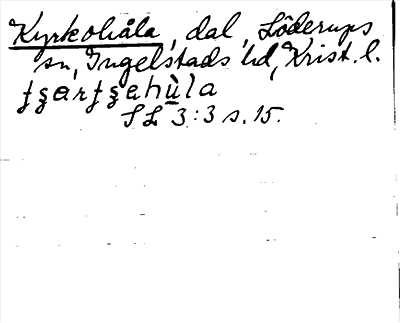 Kyrkohåla, dal, Löderups
sn, Ingelstads hd, Krist. l.
SL 3:3 s. 15.